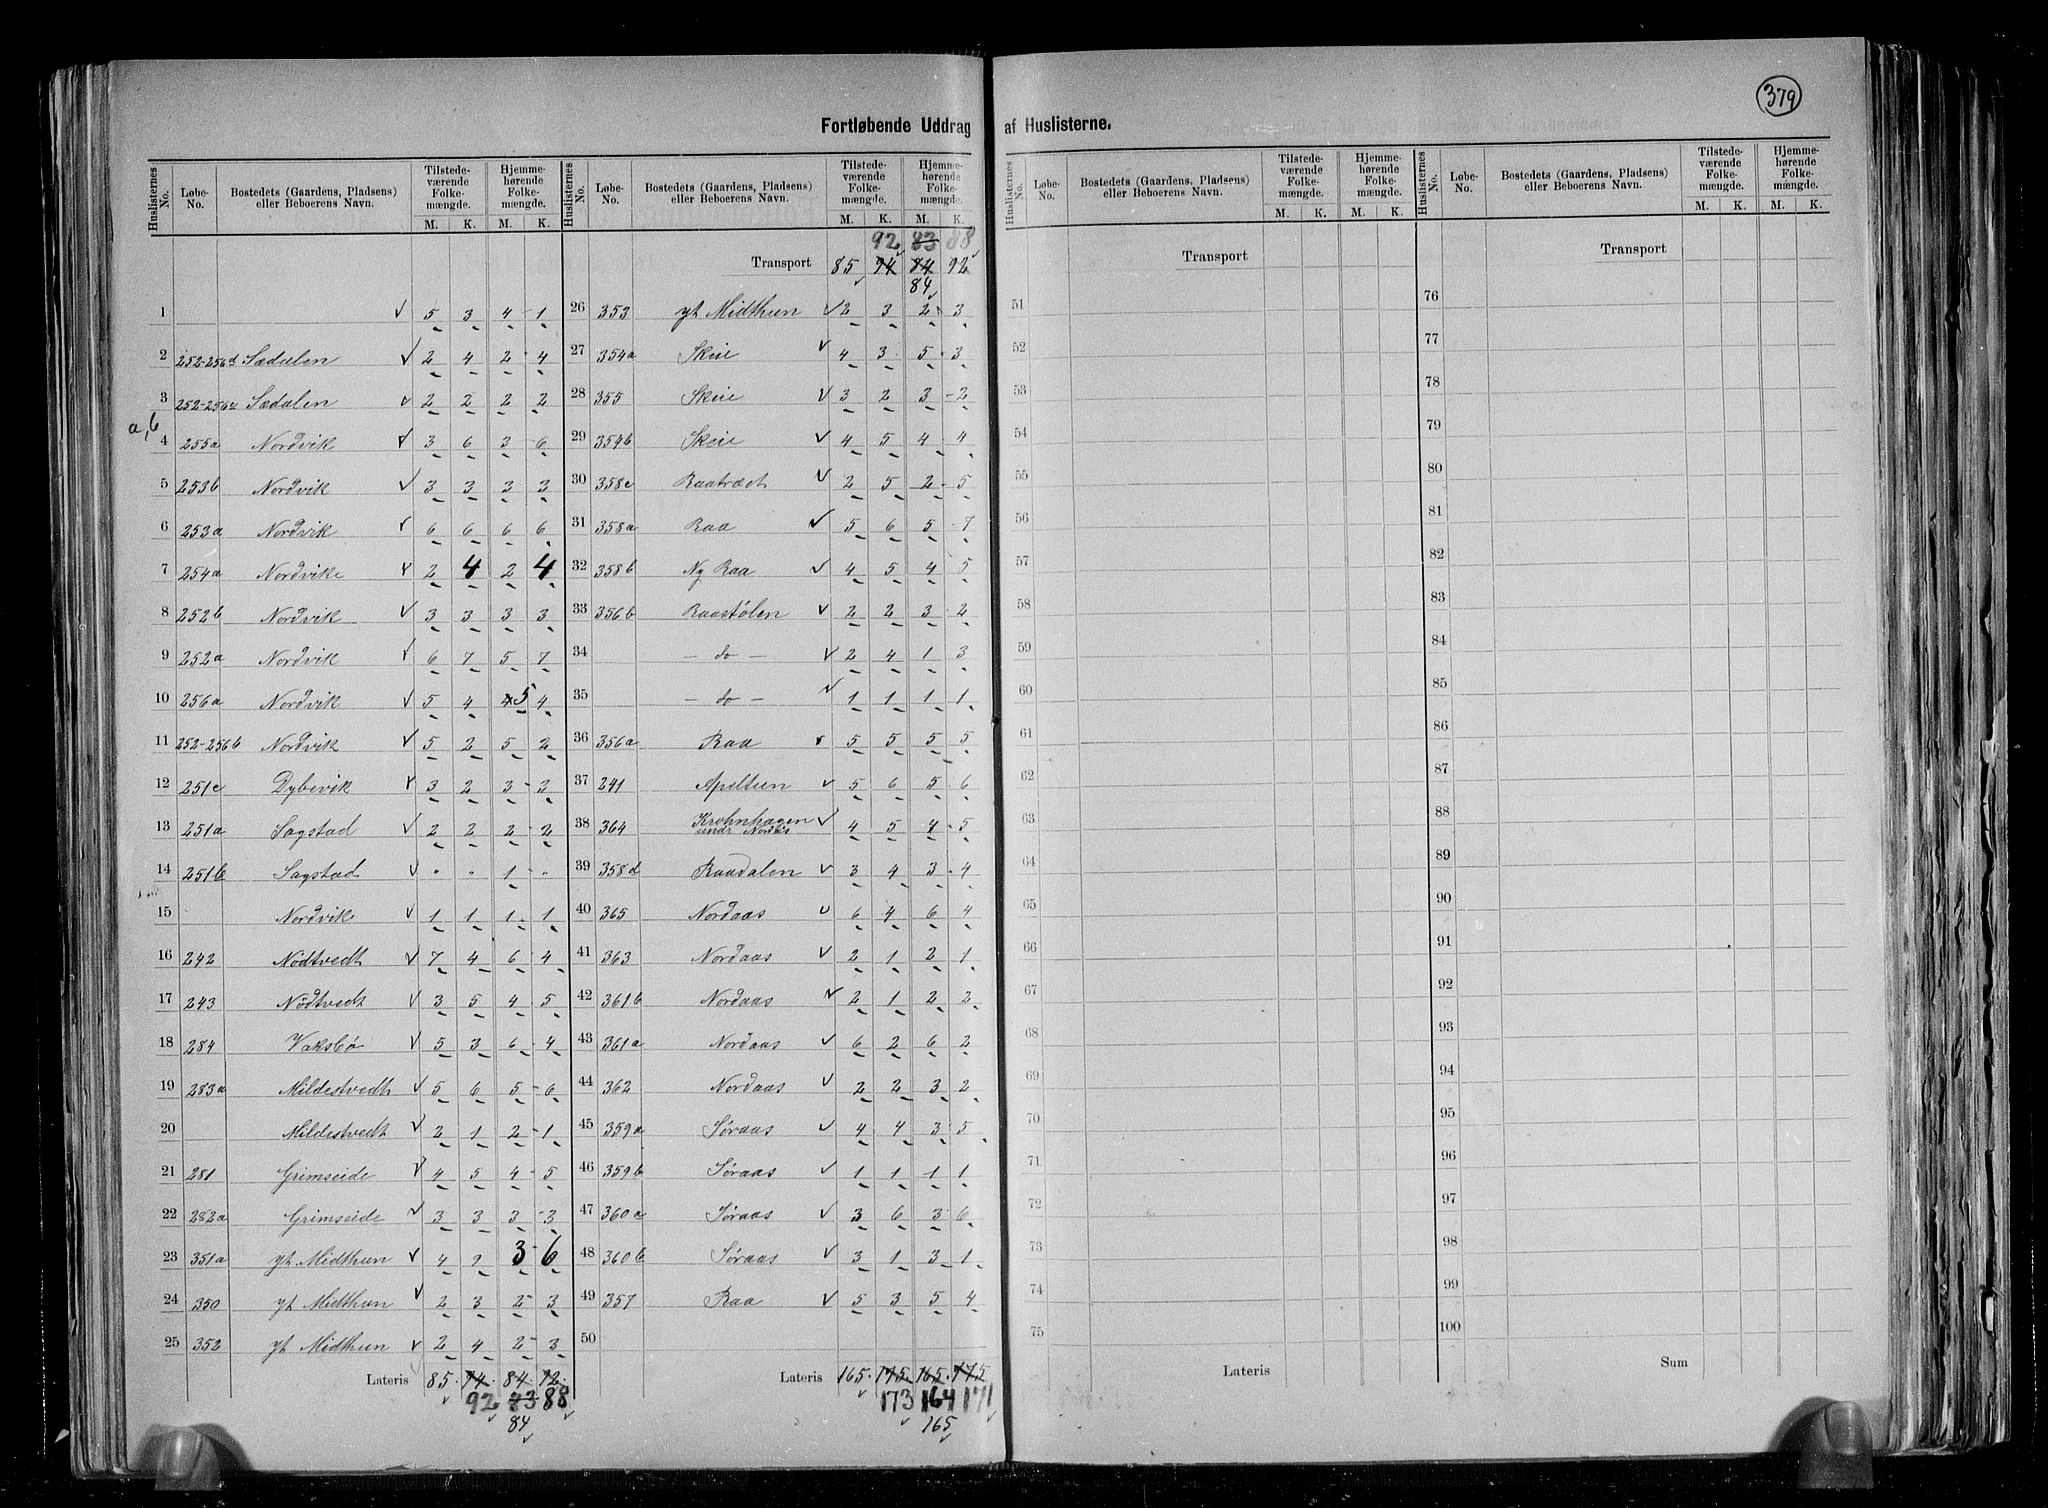 379
Fortløbende Uddrag af Huslisterne.
Huslisternes No. | Løbe-No. | Bostedets (Gaardens, Pladsens) eller Beboerens Navn. | Tilstedeværende Folkemængde. M. K. | Hjemmehørende Folkemængde. M. K.
1 | | | ✓ 5 3 4 1
2 | 252-256d | Sædalen | ✓ 2 4 2 4
3 | 252-256c | Sædalen | ✓ 2 2 2 2
a,b
4 | 255a | Nordvik | ✓ 3 6 3 6
5 | 253b | Nordvik | ✓ 3 3 3 3
6 | 253a | Nordvik | ✓ 6 6 6 6
7 | 254a | Nordvike | ✓ 2 4 2 4
8 | 252b | Nordvik | ✓ 3 3 3 3
9 | 252a | Nordvik | ✓ 6 7 5 7
10 | 256a | Nordvik | ✓ 5 4 4 5 4
11 | 252-256b | Nordvik | ✓ 5 2 5 2
12 | 251c | Dybevik | ✓ 3 2 3 2
13 | 251a | Sagstad | ✓ 2 2 2 2
14 | 251b | Sagstad | ✓ " " 1 "
15 | | Nordvik | ✓ 1 1 1 1
16 | 242 | Nödtvedt | ✓ 7 4 6 4
17 | 243 | Nödtvedt | ✓ 3 5 4 5
18 | 284 | Vaksbö | ✓ 5 3 6 4
19 | 283a | Mildestvedt | ✓ 5 6 5 6
20 | | Mildestvedt | ✓ 2 1 2 1
21 | 281 | Grimseide | ✓ 4 5 4 5
22 | 282a | Grimseide | ✓ 3 3 3 3
23 | 351a | yt Midthun | ✓ 4 9 3 6
24 | 350 | yt Midthun | ✓ 2 3 2 3
25 | 352 | yt Midthun | ✓ 2 4 2 3
Lateris 85 94 84 92
92 83 88
84
Huslisternes No. | Løbe-No. | Bostedets (Gaardens, Pladsens) eller Beboerens Navn. | Tilstedeværende Folkemængde. M. K. | Hjemmehørende Folkemængde. M. K.
92 83 88
Transport 85 94 84 92
84
26 | 353 | yt Midthun | ✓ 2 3 2 3
27 | 354a | Skeie | ✓ 4 3 5 3
28 | 355 | Skeie | ✓ 3 2 3 2
29 | 354b | Skeie | ✓ 4 5 4 4
30 | 358c | Raatræet | ✓ 2 5 2 5
31 | 358a | Raa | ✓ 5 6 5 7
32 | 358b | Ny Raa | ✓ 4 5 4 5
33 | 356b | Raastölen | ✓ 2 2 3 2
34 | | - do - | ✓ 2 4 1 3
35 | | - do - | ✓ 1 1 1 1
36 | 356a | Raa | ✓ 5 5 5 5
37 | 241 | Apeltun | ✓ 5 6 5 6
38 | 364 | Krohnhagen undr Nordås | ✓ 4 5 4 5
39 | 358d | Raadalen | ✓ 3 4 3 4
40 | 365 | Nordaas | ✓ 6 4 6 4
41 | 363 | Nordaas | ✓ 2 1 2 1
42 | 361b | Nordaas | ✓ 2 1 2 2
43 | 361a | Nordaas | ✓ 6 2 6 2
44 | 362 | Nordaas | ✓ 2 2 3 2
45 | 359a | Söraas | ✓ 4 4 3 5
46 | 359b | Söraas | ✓ 1 1 1 1
47 | 360a | Söraas | ✓ 3 6 3 6
48 | 360b | Söraas | ✓ 3 1 3 1
49 | 357 | Raa | ✓ 5 3 5 4
50
Lateris 165 175 165 175
173 164 171
165
Huslisternes No. | Løbe-No. | Bostedets (Gaardens, Pladsens) eller Beboerens Navn. | Tilstedeværende Folkemængde. M. K. | Hjemmehørende Folkemængde. M. K.
Transport
51
52
53
54
55
56
57
58
59
60
61
62
63
64
65
66
67
68
69
70
71
72
73
74
75
Lateris
Huslisternes No. | Løbe-No. | Bostedets (Gaardens, Pladsens) eller Beboerens Navn. | Tilstedeværende Folkemængde. M. K. | Hjemmehørende Folkemængde. M. K.
Transport
76
77
78
79
80
81
82
83
84
85
86
87
88
89
90
91
92
93
94
95
96
97
98
99
100
Sum